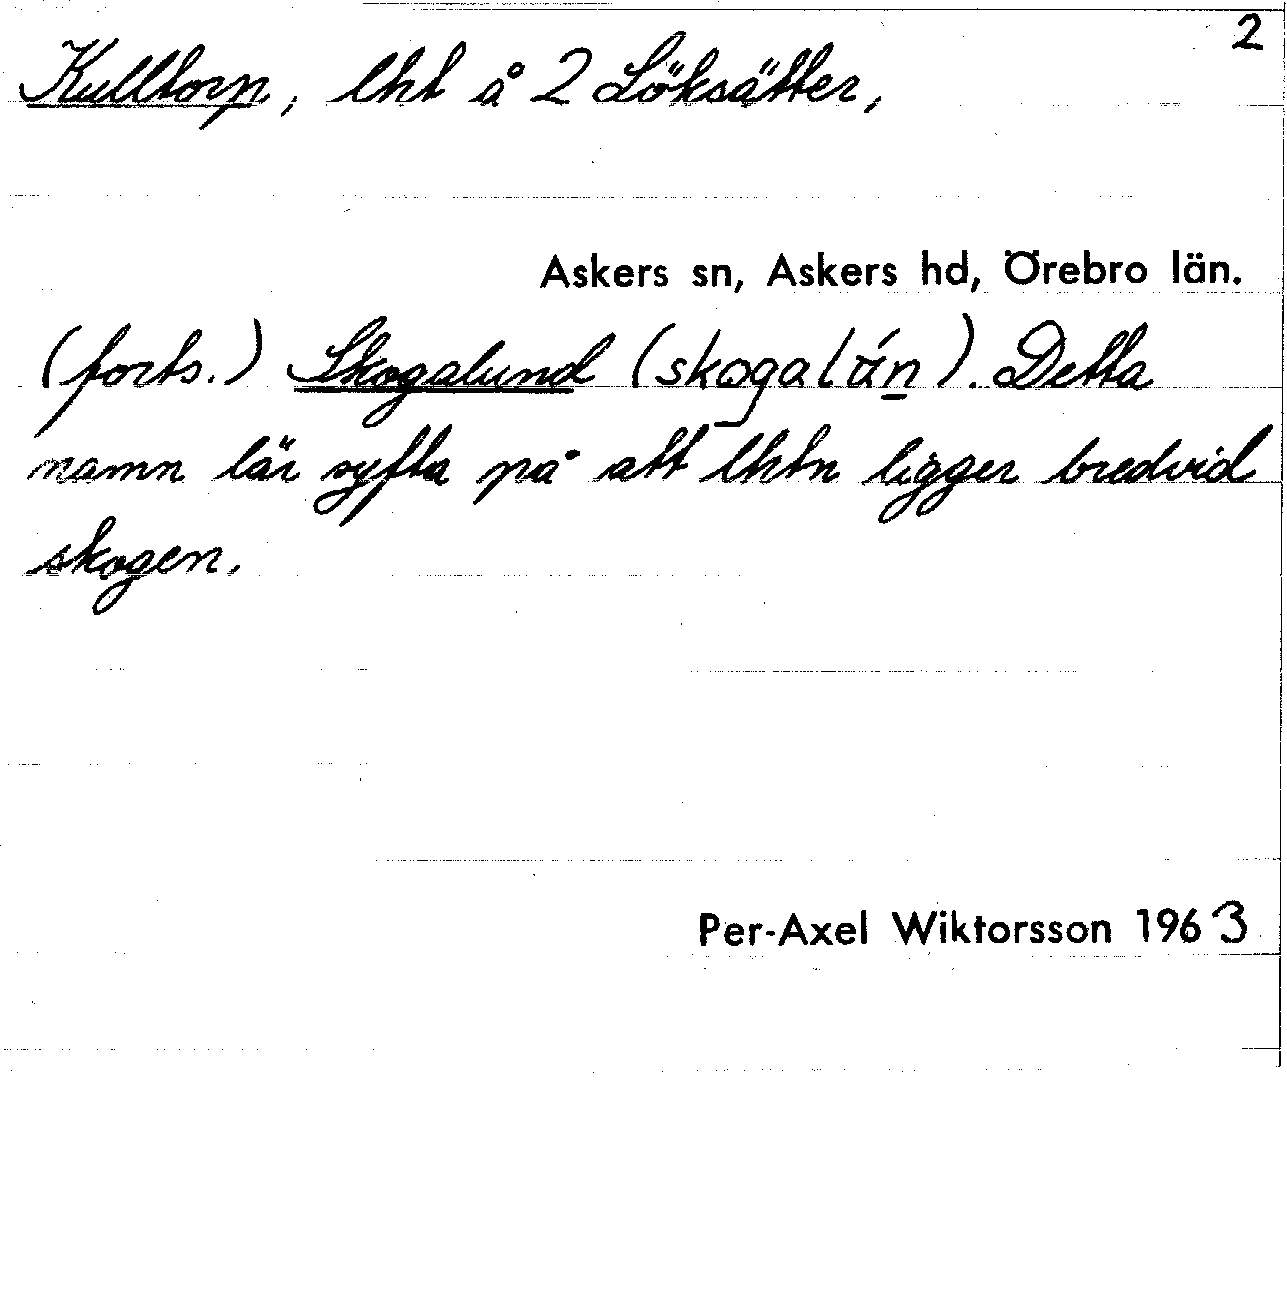 2
Kulltorp, lht å 2 Löksätter,
Askers sn, Askers hd, Örebro län.
(forts.) Skogalund (). Detta
namn lär syfta på att lhtn ligger bredvid
skogen.
Per-Axel Wiktorsson 1963